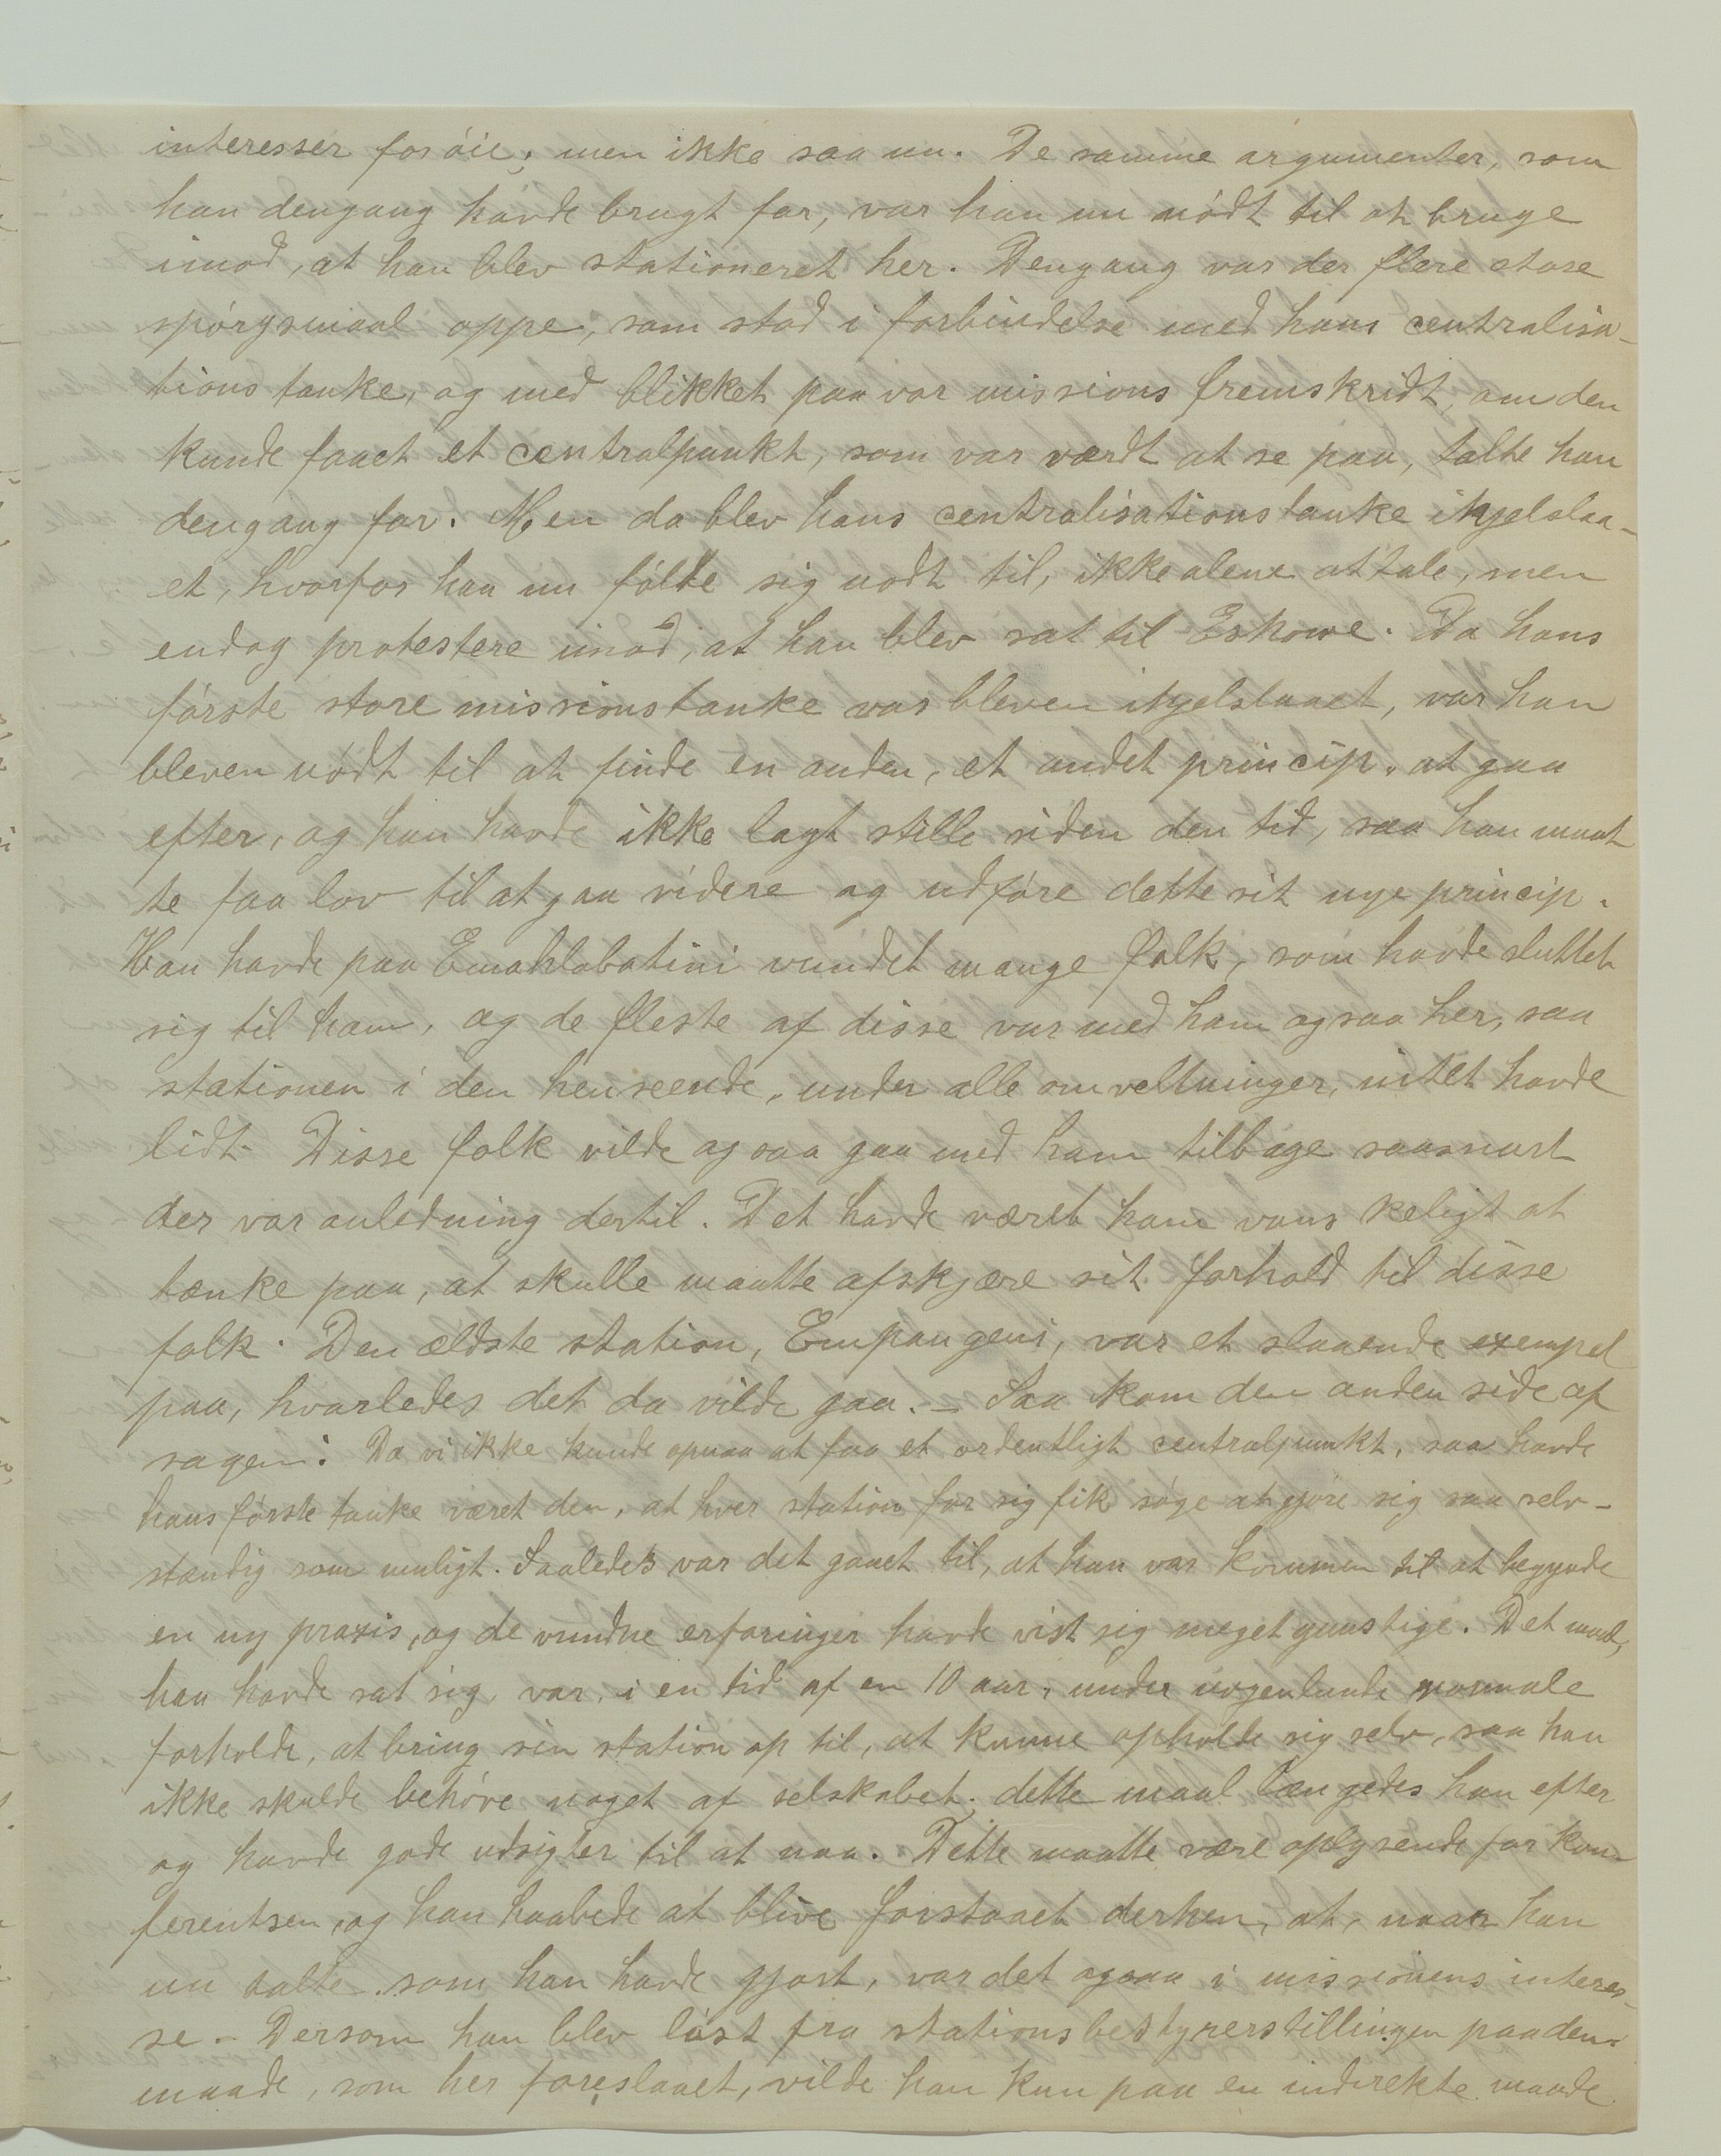 interesser for óie; men ikke saa nu. De samme argumenter, som
han dengang havde brugt for, var han nu nódt til at bruge
imod, at han blev stationeret her. Dengang var der flere store
spórgsmaal oppe, som stod i forbindelse med hans centralisa-
tions tanke, og med blikket paa vor missions fremskridt, om den
kunde faaet et centralpunkt, som var værdt at se paa, talte han
dengang for. Men da blev hans centralisationstanke ihjelslaa-
et, hvorfor han nu fólte sig nodt til, ikke alene at tale, men
endog protestere imod, at han blev sat til Eshowe. Da hans
fórste store missionstanke var bleven ihjelslaaet, var han
bleven nódt til at finde en anden, et andet princip, at gaa
efter, og han havde ikke lagt stille siden den tid, saa han maat
te faa lov til at gaa videre og udfóre dette sit nye princip.
Han havde paa Emahlabatini vundet mange folk, som havde sluttet
sig til ham, og de fleste af disse var med ham ogsaa her, saa
stationen i den henseende, under alle omveltninger, intet havde
lidt. Disse folk vilde ogsaa gaa med ham tilbage saasnart
der var anledning dertil. Det havde været ham vanskeligt at
tænke paa, at skulle maatte afskjære sit forhold til disse
folk. Den ældste station, Empangeni, var et slaaende exempel
paa, hvorledes det da vilde gaa. – Saa kom den anden side af
sagen: Da vi ikke kunde opnaa at faa et ordentligt centralpunkt, saa havde
hans fórste tanke været den, at hver station for sig fik sóge at gjóre sig saa selv-
stændig som muligt. Saaledes var det gaaet til, at han var kommen til at begynde
en ny praxis, og de vundne erfaringer havde vist sig meget gunstige. Det maal,
han havde sat sig, var, i en tid af en 10 aar, under nogenlunde normale
forholde, at bring sin station op til, at kunne opholde sig selv, saa han
ikke skulde behóve noget af selskabet; dette maal længedes han efter
og havde gode udsigter til at naa. Dette maatte være oplysende for kon-
ferentsen, og han haabede at blive forstaaet derhen, at, naar han
nu talte som han havde gjort, var det ogsaa i missionens interes-
se. – Dersom han blev lóst fra stationsbestyrerstillingen paa den
maade, som her foreslaaet, vilde han kun paa en indirekte maade